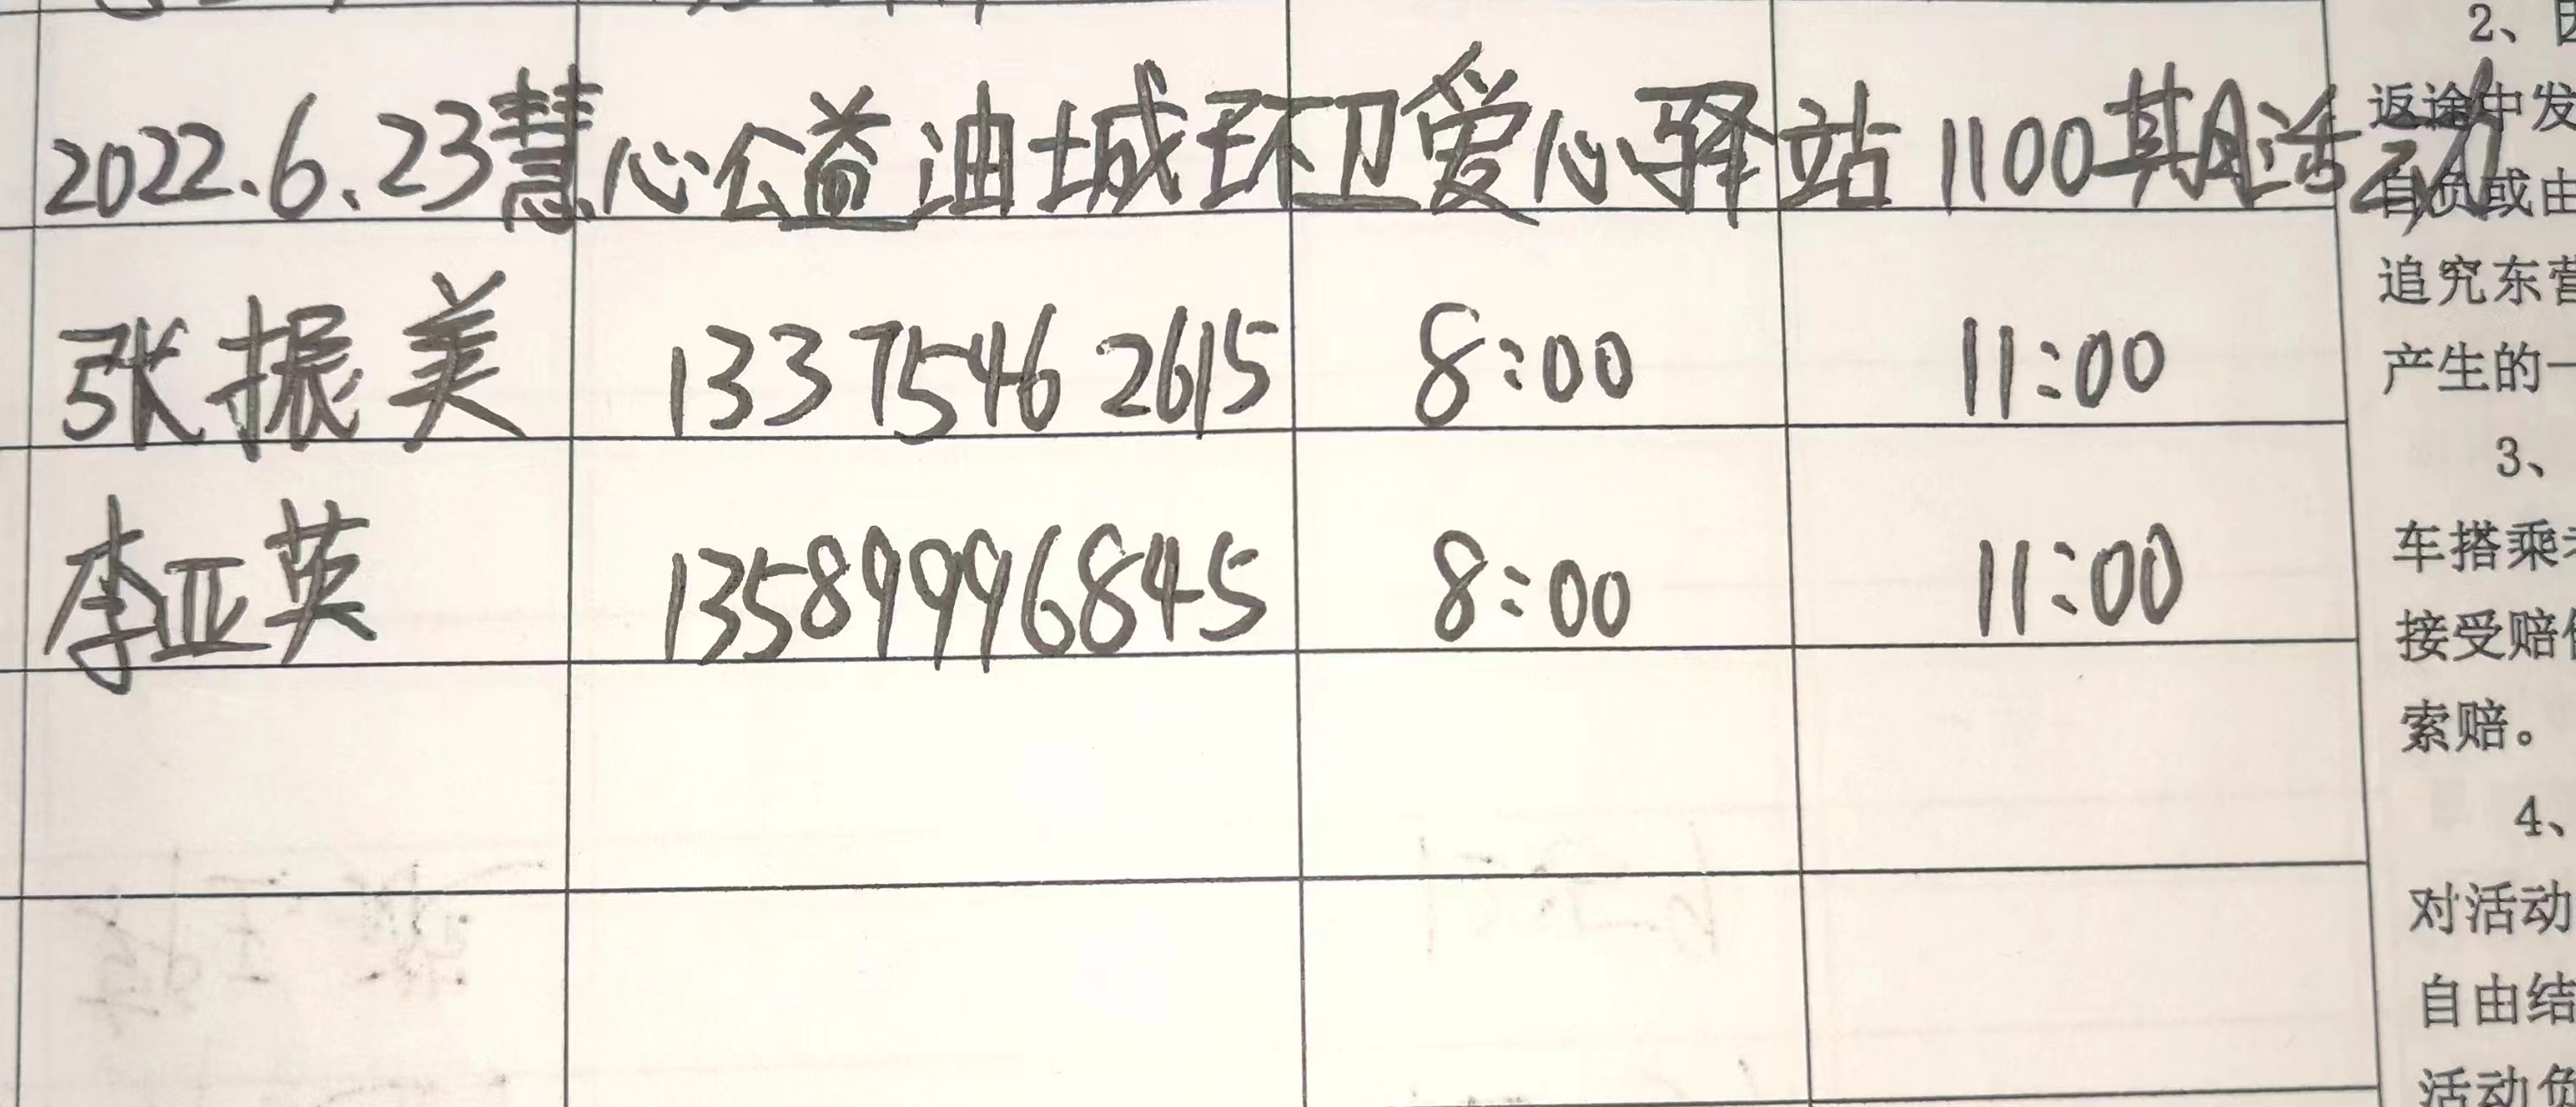 2022.6.23慧心公益油城环卫爱心驿站1100期活动
张振美 13375462615 8:00 11:00
李亚英 13589996845 8:00 11:00
2、
返途中发
自负或由
追究东营
产生的一
3、
车搭乘
接受赔
索赔。
4、
对活动
自由结
活动负